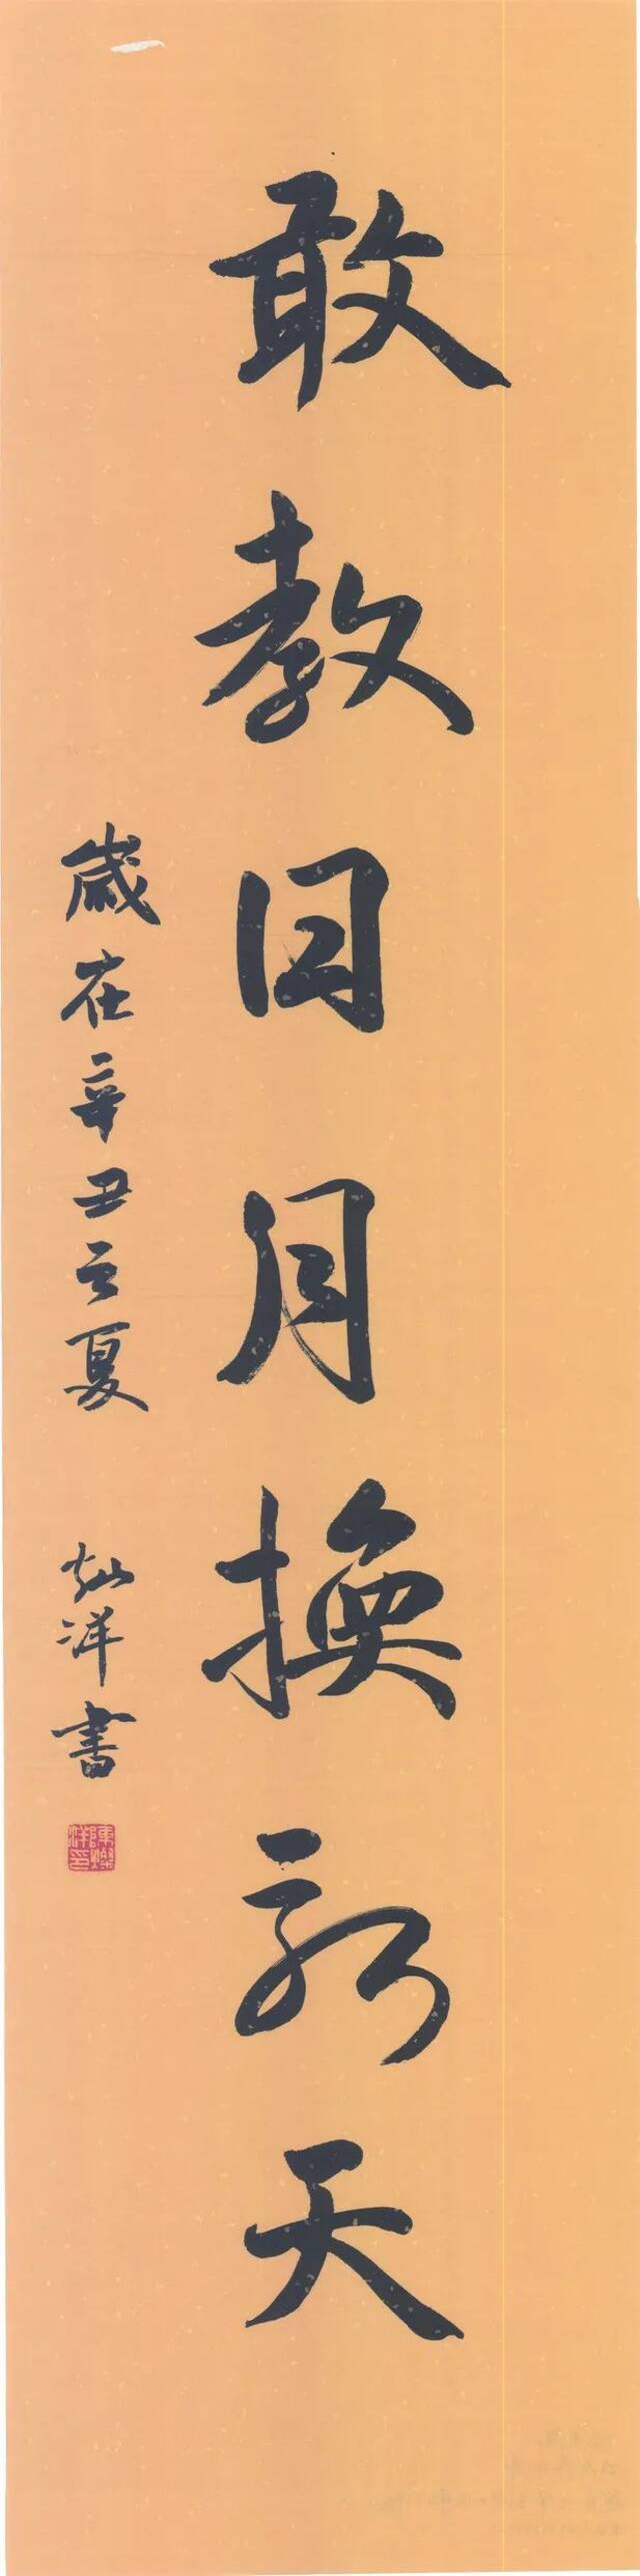 敢教日月換新天
歲在辛丑之夏 灿洋書